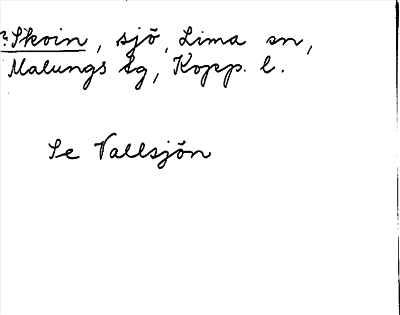 ?Skoin, sjö, Lima sn,
Malungs tg, Kopp. l.
Se Vallsjön